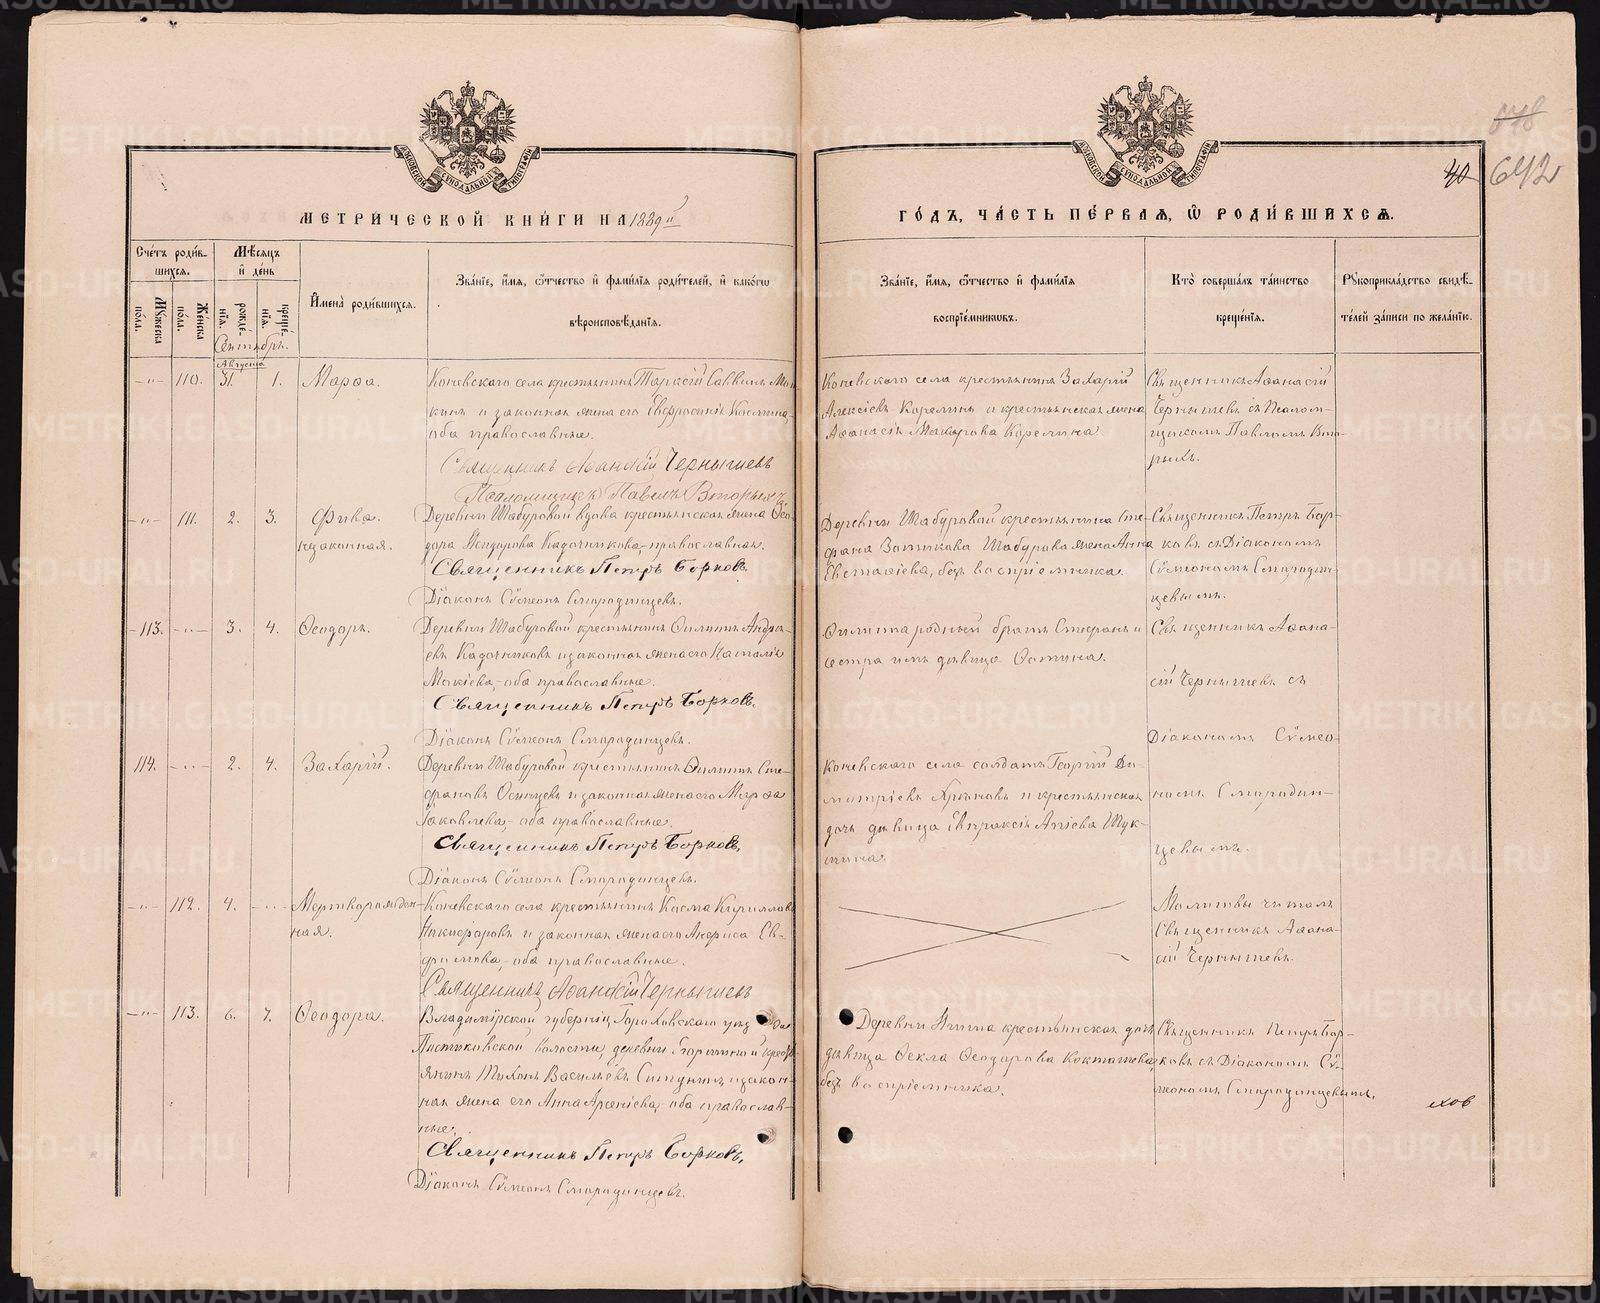 МЕТРИ́ЧЕСКОЙ КНИ́ГИ НА 1889 й
ГО́ДЪ, ЧА́СТЬ ПЕ́РВАЯ, Ѡ҆ РОДИ́ВШИХСЯ.
642
Сче́тъ роди́вшихся.
Мѣ́сяцъ и҆ де́нь
И҆мена̀ роди́вшихся.
Зва́нїе, и҆́мя, ѻ҆́тчество и҆ фами́лїя роди́телей, и҆ како́гѡ вѣроисповѣ́данїя.
Зва́нїе, и҆́мя, ѻ҆́тчество и҆ фами́лїя воспрїе́мниковъ.
Кто̀ соверша́лъ та́инство креще́нїя.
Рꙋкоприкла́дство свидѣ́телей за́писи по жела́нїю.
Мꙋжеска по́ла.
Же́нска по́ла.
рожде́нїя.
креще́нїя.
Сентябрь.
Августа
110. 31. 1. Марѳа.
Коневскаго села крестьянинъ Тарасій Саввинъ
и законная жена его Евфросинія Космина,
оба православные.
Священникъ Аѳанасій Чернышевъ
Псаломщикъ Павелъ Вторыхъ
Коневскаго села крестьянинъ Захарій
Алексіевъ Корелинъ и крестьянская жена
Аѳанасія Макарова Корелина.
Священникъ Аѳанасій
Чернышевъ съ Псалом-
щикомъ Павломъ Вто-
рыхъ.
111. 2. 3. Фива.
незаконная.
Деревни Шабуровой вдова крестьянская жена Ѳео-
дора Исидорова Кадочникова, православная.
Священникъ Петръ Борковъ.
Діаконъ Сѵмеонъ Смородинцевъ.
Деревни Шабуровой крестьянина Сте-
фана Зотикова Шабурова жена Анна
Евстаѳіева, безъ воспріемника.
Священникъ Петръ Бор-
ковъ съ Діакономъ
Сѵмеономъ Смородин-
цевымъ.
113. 3. 4. Ѳеодоръ.
Деревни Шабуровой крестьянинъ Филиппъ Андре-
евъ Кадочниковъ и законная жена его Наталія
Мокіева, оба православные.
Священникъ Петръ Борковъ.
Діаконъ Сѵмеонъ Смородинцевъ.
Филиппа родный братъ Стефанъ и
сестра имъ дѣвица Фотина.
Священникъ Аѳана-
сій Чернышевъ съ
Діакономъ Сѵмео-
номъ Смородин-
цевымъ.
114. 2. 4. Захарій.
Деревни Шабуровой крестьянинъ Филиппъ Сте-
фановъ Осинцевъ и законная жена его Марѳа
Іаковлева, оба православные.
Священникъ Петръ Борковъ.
Діаконъ Сѵмеонъ Смородинцевъ.
Коневскаго села солдатъ Георгій Ди-
митріевъ и крестьянская
дочь дѣвица Евпраксія
112. 4. Мертворожден-
ная.
Коневскаго села крестьянинъ Косма Кирилловъ
Никифоровъ и законная жена его Анфиса Ев-
фимова, оба православные.
Священникъ Аѳанасій Чернышевъ
Молитвы читалъ
Священникъ Аѳана-
сій Чернышевъ.
113. 6. 7. Ѳеодора.
Владимірской губерніи, Гороховскаго уѣзда
волости, деревни кресть-
янинъ Тихонъ Васильевъ и закон-
ная жена его Анна Арсеніева, оба православ-
ные.
Священникъ Петръ Борковъ.
Діаконъ Сѵмеонъ Смородинцевъ.
Деревни крестьянская дочь
дѣвица Ѳекла Ѳеодорова
безъ воспріемника.
Священникъ Петръ Бор-
ковъ съ Діакономъ Сѵ-
меономъ Смородинцевымъ.
METRIKI.GASO-URAL.RU